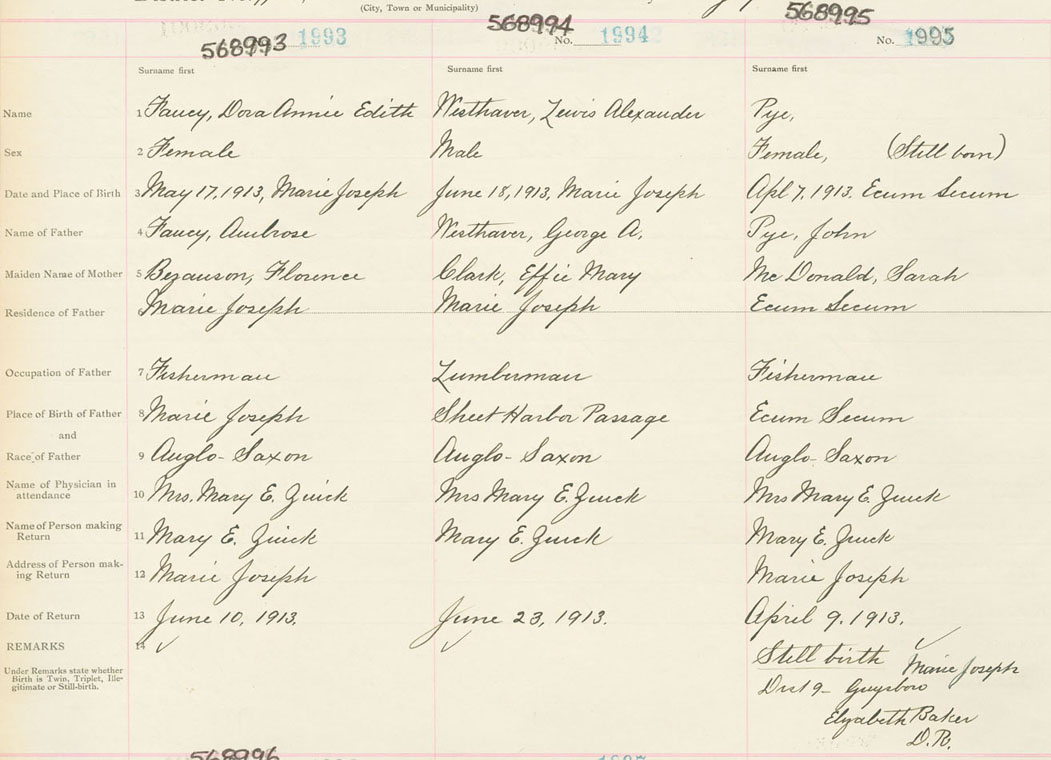 (City, Town or Municipality)
568993 1993
568994 No. 1994
568995 No. 1995
Surname first Surname first Surname first
Name 1 Faucy, Dora Annie Edith Westhaver, Lewis Alexander Pye,
Sex 2 Female Male Female, (Still born)
Date and Place of Birth 3 May 17, 1913, Marie Joseph June 18, 1913, Marie Joseph Apl 7, 1913. Ecum Secum
Name of Father 4 Faucy, Ambrose Westhaver, George A. Pye, John
Maiden Name of Mother 5 Bezanson, Florence Clark, Effie Mary Mc Donald, Sarah
Residence of Father Marie Joseph Marie Joseph Ecum Secum
Occupation of Father 7 Fisherman Lumberman Fisherman
Place of Birth of Father 8 Marie Joseph Sheet Harbor Passage Ecum Secum
and
Race of Father 9 Anglo-Saxon Anglo-Saxon Anglo-Saxon
Name of Physician in
attendance 10 Mrs. Mary E. Quick Mrs Mary E. Quick Mrs Mary E. Quick
Name of Person making
Return 11 Mary E. Quick Mary E. Quick Mary E. Quick
Address of Person mak-
ing Return 12 Marie Joseph Marie Joseph
Date of Return 13 June 10, 1913. June 23, 1913. April 9, 1913.
REMARKS 14
Under Remarks state whether
Birth is Twin, Triplet, Ille-
gitimate or Still-birth.
Still birth Marie Joseph
Dist 9 - Guysboro
Elizabeth Baker
D.R.
568996